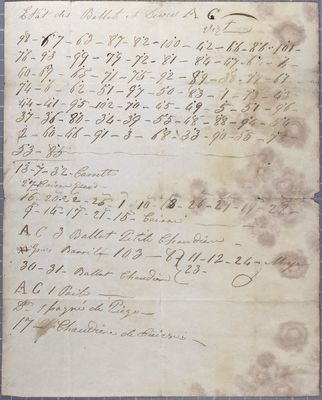 Etat des Ballot et Pieces A C
98 - 67 - 63 - 87 - 82 - 100 - 62 - 66 - 86 - 101
76 - 93 - 99 - 79 - 72 - 81 - 84 - 47 - 64 -
60 - 69 - 65 - 71 - 75 - 92 - 89 - 38 - 67
74 - 62 - 51 - 97 - 50 - 83 - 1 - 73 - 43
44 - 41 - 95 - 102 - 70 - 45 - 49 - 5 - 57 - 96
37 - 36 - 80 - 34 - 39 - 55 - 48 - 88 - 94 - 54
2 - 40 - 46 - 91 - 3 - 68 - 33 - 90 - 35 -
53 - 85
13 - 7 - 32 - Cassette
16 - 20 - 22 - 25 - 1 - 10 - 18 - 26 - 27 - 19 - 28
9 - 14 - 17 - 21 - 15 - Caisse
A C 3 Ballot Petit Chaudiere
Barrils 103 - 8 11 - 12 - 24 -
30 - 31 - Ballot Chaudiere 23 -
A C 1 Poile
Do 1 pagné de Piege
17 Chaudiere de Cuivre